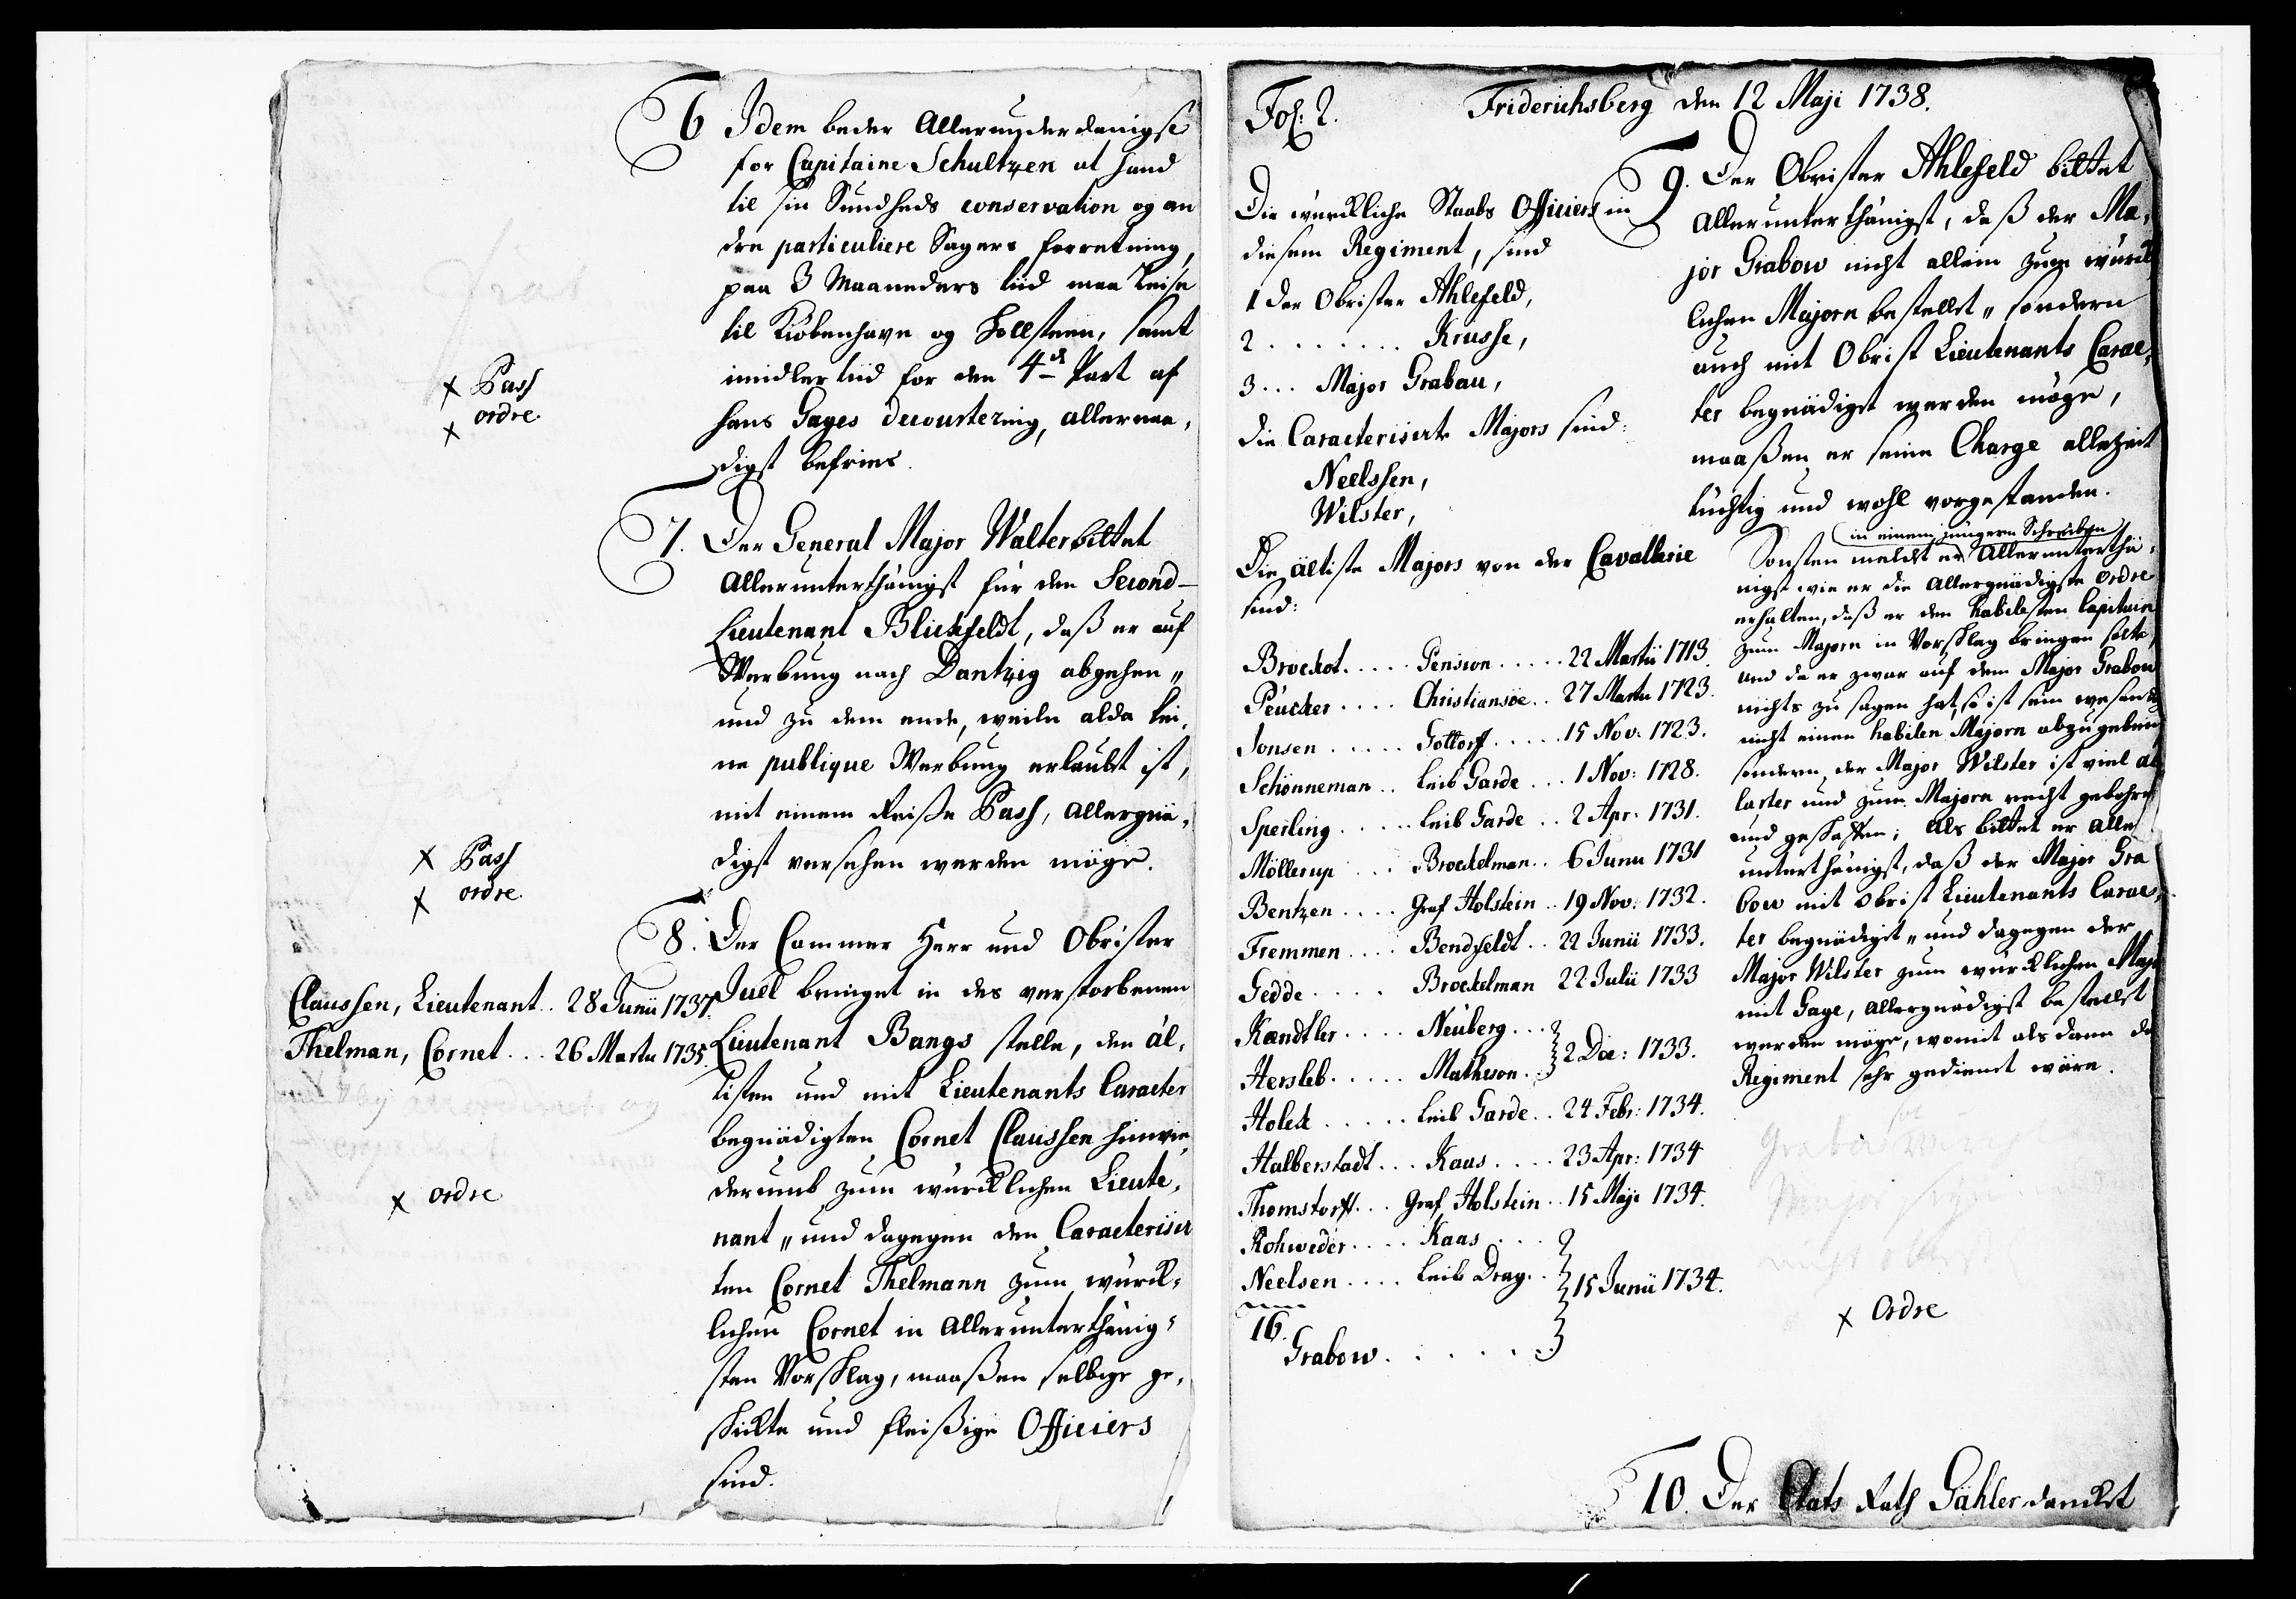 6 Idem beder Allerunderdanigst
for Capitaine Schultzen at hand
til sin Sundheds conservation og an
dre particuliere Sagers forretning,
paa 3 Maaneders tiid maa Reise
til Kiöbenhavn og Hollsteen, samt
imidlertiid for den 4de Part af
hans Gages decourtering, allernaa,
digst befries.
x Pass
x ordre
7. Der General Major Walter bittet
Allerunterthänigst für den Second-
Lieutenant Blickfeldt, daß er auf
Werbung nach Dantzig abgehen„
und zu dem ende, weiln alda kei,
ne publique Werbung erlaubt ist,
mit einem Reise Pass, Allergnä,
digst versehen werden möge.
x Pass
x ordre
8. Der Cammer Herr und Obrister
Juel bringet in des verstorbenen
Lieutenant Bangs stelle, den äl,
tisten und mit Lieutenants Caracter
begnädigten Cornet Claussen hinwie,
derumb zum würcklichen Lieute,
nant„ und dagegen den Caracterisir
ten Cornet Thelmann zum würck,
lichen Cornet in Allerunterthänig,
sten Vorschlag, maaßen selbige ge,
schickte und fleißige Officiers
sind.
Claussen, Lieutenant.. 28 Junii 1737.
Thelman, Cornet... 26 Martii 1735.
x ordre
Fol: 2.
Friderichsberg den 12 Maji 1738.
Die würckliche Staabs Officiers in
diesem Regiment, sind
1 Der Obrister Ahlefeld,
2 ........ Krusse,
3... Major Grabau,
Die Caracterisirte Majors sind:
Neelssen,
Wilster,
Die ältiste Majors von der Cavallerie
sind:
Brockot..... Penision..... 22 Martii 1713.
Peucker.... Christiansöe.. 27 Martii 1723.
Jonsen...... Gottorff..... 15 Nov: 1723.
Schönneman.. Leib Garde... 1 Nov: 1728.
Sperling..... Leib Garde.. 2 Apr: 1731.
Möllerup... Brockelman.. 6 Junii 1731
Bentzen.... Graf Holstein.. 19 Nov: 1732.
Fremmen.... Bendfeldt.. 22 Junii 1733.
Gedde..... Brockelman 22 Julii 1733
Kændtler.... Neuberg...
Hersleb..... Matheson.. 2 Dec: 1733.
Holck...... Leib Garde.. 24 Febr: 1734.
Halberstadt... Kaas.... 23 Apr: 1734
Thomstorff... Graf Holstein.. 15 Maji 1734.
Rohweder.... Kaas...
Neelsen.... Leib Drag.. 15 Junii 1734.
16.
Grabow......
9. Der Obrister Ahlefeld bittet
Allerunterthänigst, daß der Ma,
jor Grabow nicht allein zum würck
lichen Majorn bestellet„ sondern
auch mit Obrist Lieutenants Carac,
ter begnädiget werden möge,
maaßen er seine Charge allezeit
tüchtig und wohl vorgestanden.
in einem jüngern Schreiben
Sonsten meldt er Allerunterthä,
nigst wie er die Allergnädigste ordre
erhalten, daß er den habilesten Capitain
zum Majorn in Vorschlag bringen solte,
und da er zwar auf dem Major Grabow
nichts zu sagen hat, so ist sein wesen
nicht einen habilen Majorn abzugeben,
sondern der Major Wilster ist viel al
larter und zum Majorn recht gebohren
und geschaffen; Als bittet er Aller
unterthänigst, daß der Major Gra
bow mit Obrist Lieutenants Carac,
ter begnädiget„ und dagegen der
Major Wilster zum würcklichen Major
mit Gage, Allergnädigst bestellet
werden möge, womit als dann das
Regiment sehr gedienet wäre.
x Ordre
10. Der Etats Rath Gähler dancket